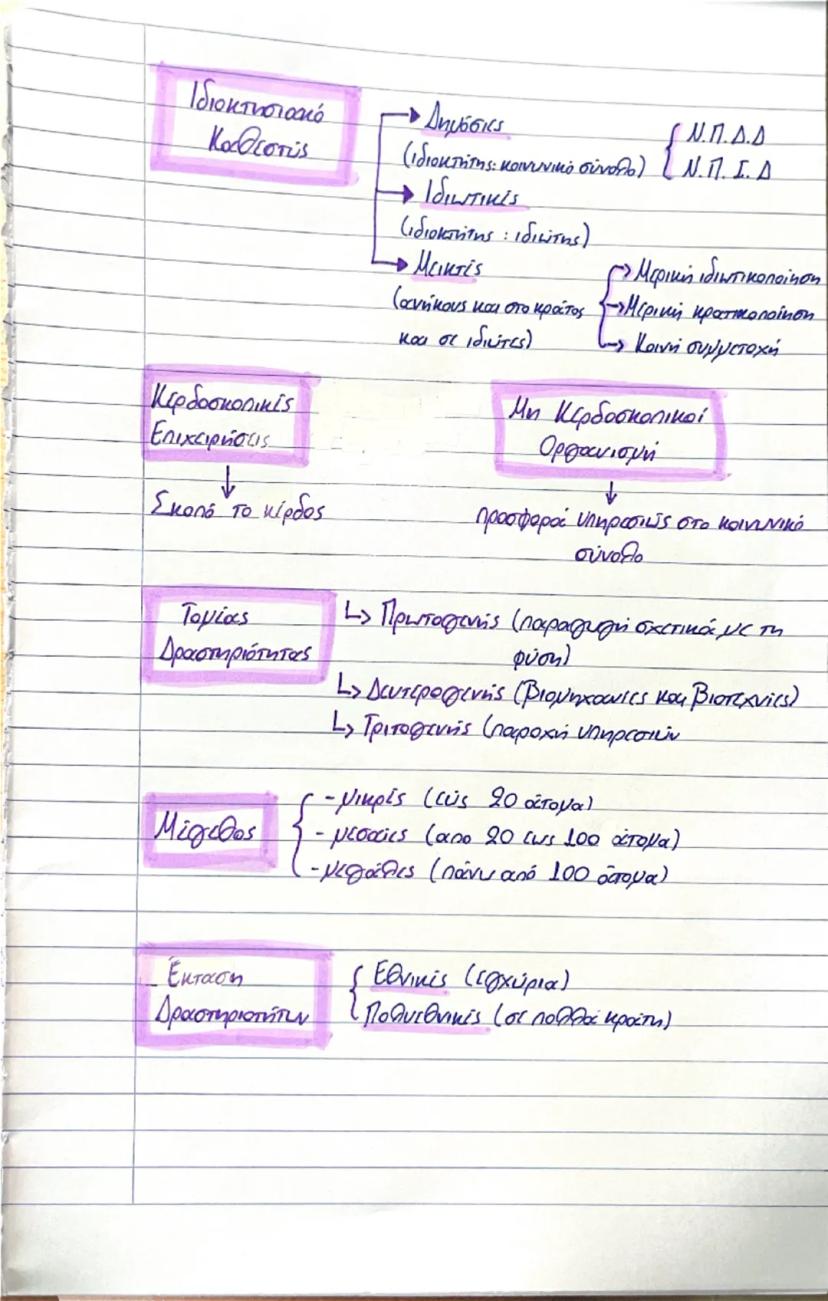 Ιδιοκτησιακό
Καθεστώς
Δημόσιες
(ιδιοκτήτης: κοινωνικό σύνολο)
Ν.Π.Δ.Δ
Ν.Π.Ι.Δ
Ιδιωτικές
(ιδιοκτήτης : ιδιώτης)
Μεικτές
(ανήκους και στο κράτος
και σε ιδιώτες)
Μερική ιδιωτικοποίηση
Μερική κρατικοποίηση
Κοινή συμμετοχή
Κερδοσκοπικές
Επιχειρήσεις
Σκοπό το κέρδος
Μη Κερδοσκοπικοί
Οργανισμοί
προσφορά υπηρεσιώς στο κοινωνικό
σύνολο
Τομέας
Δραστηριότητας
Πρωτογενής (παραγωγή σχετικά με τη
φύση)
Δευτερογενής (βιομηχανίες και βιοτεχνίες)
Τριτογενής (παροχή υπηρεσιών
Μέγεθος
- μικρές (εώς 20 άτομα)
- μεσαίες (απο 20 εως 100 άτομα)
- μεγάλες (πάνω από 100 άτομα)
Έκταση
Δραστηριοτήτων
Εθνικές (εγχώρια)
Πολυεθνικές (σε πολλά κράτη)